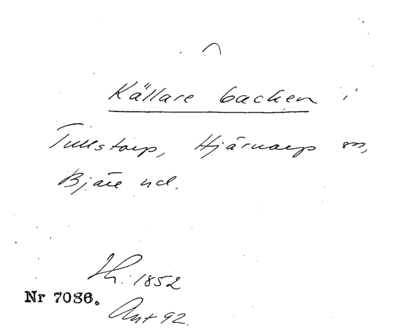 Källare backen i
Tullstorp, Hjärnarp sn,
Bjäre hd.
Lh. 1852
Nr 7086.
Ant 92.